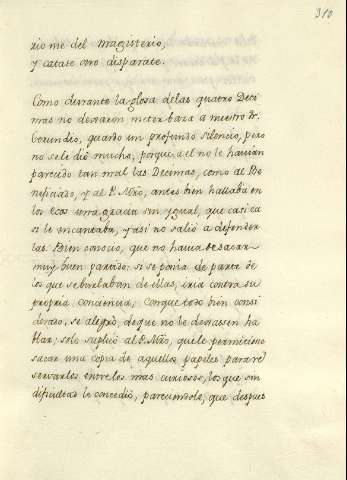 310
rio me del magisterio,
y catase otro disparate.
Como durante la glosa delas quatro Deci
mas no dexaron meter baza a nuestro Fr.
Gerundio, guardó un profundo silencio, pero
no sele dió mucho, porque a el no le havian
parecido tan mal las Decimas, como al Be
neficiado, y al P. Mro, antes bien hallaba en
los Ecos una gracia sin ygual, que casi ca
si le encantaba, y asi no salió a defender
las. Bien conocio, que no havia de sacar
muy buen partido: si se ponia de parte de
los que se burlaban de ellas, iria contra su
propria conciencia; Conque todo bien consi
derado, se alegrò, de que no le dexassen ha
blar; solo suplicó al P. Mro, que le permitiesse
sacar una copia de aquellos papeles para re
servarlos entre los mas curiosos, lo que sin
dificultad le concedió, pareciendole, que despues